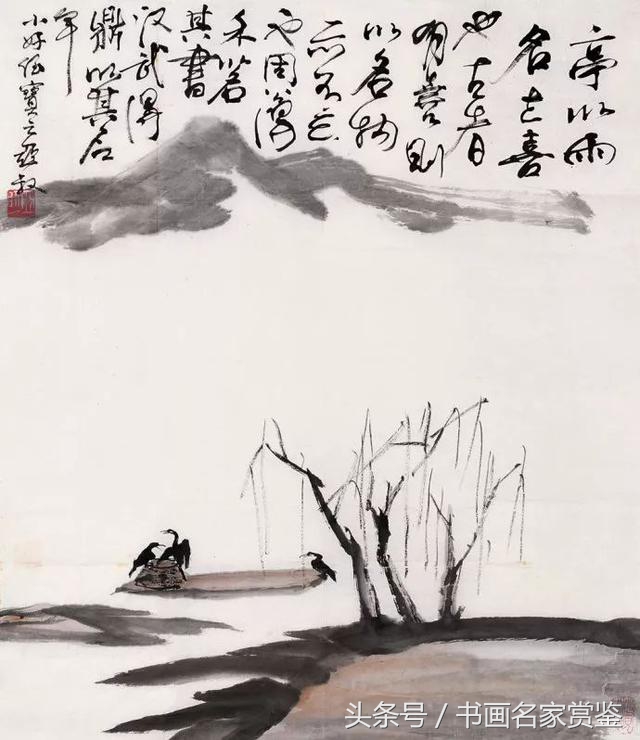 亭以雨
名志喜
也古者
有喜则
以名物
示不忘
也周得
禾以名
其书
汉武得
鼎以其名
年
头条号 / 书画名家赏鉴